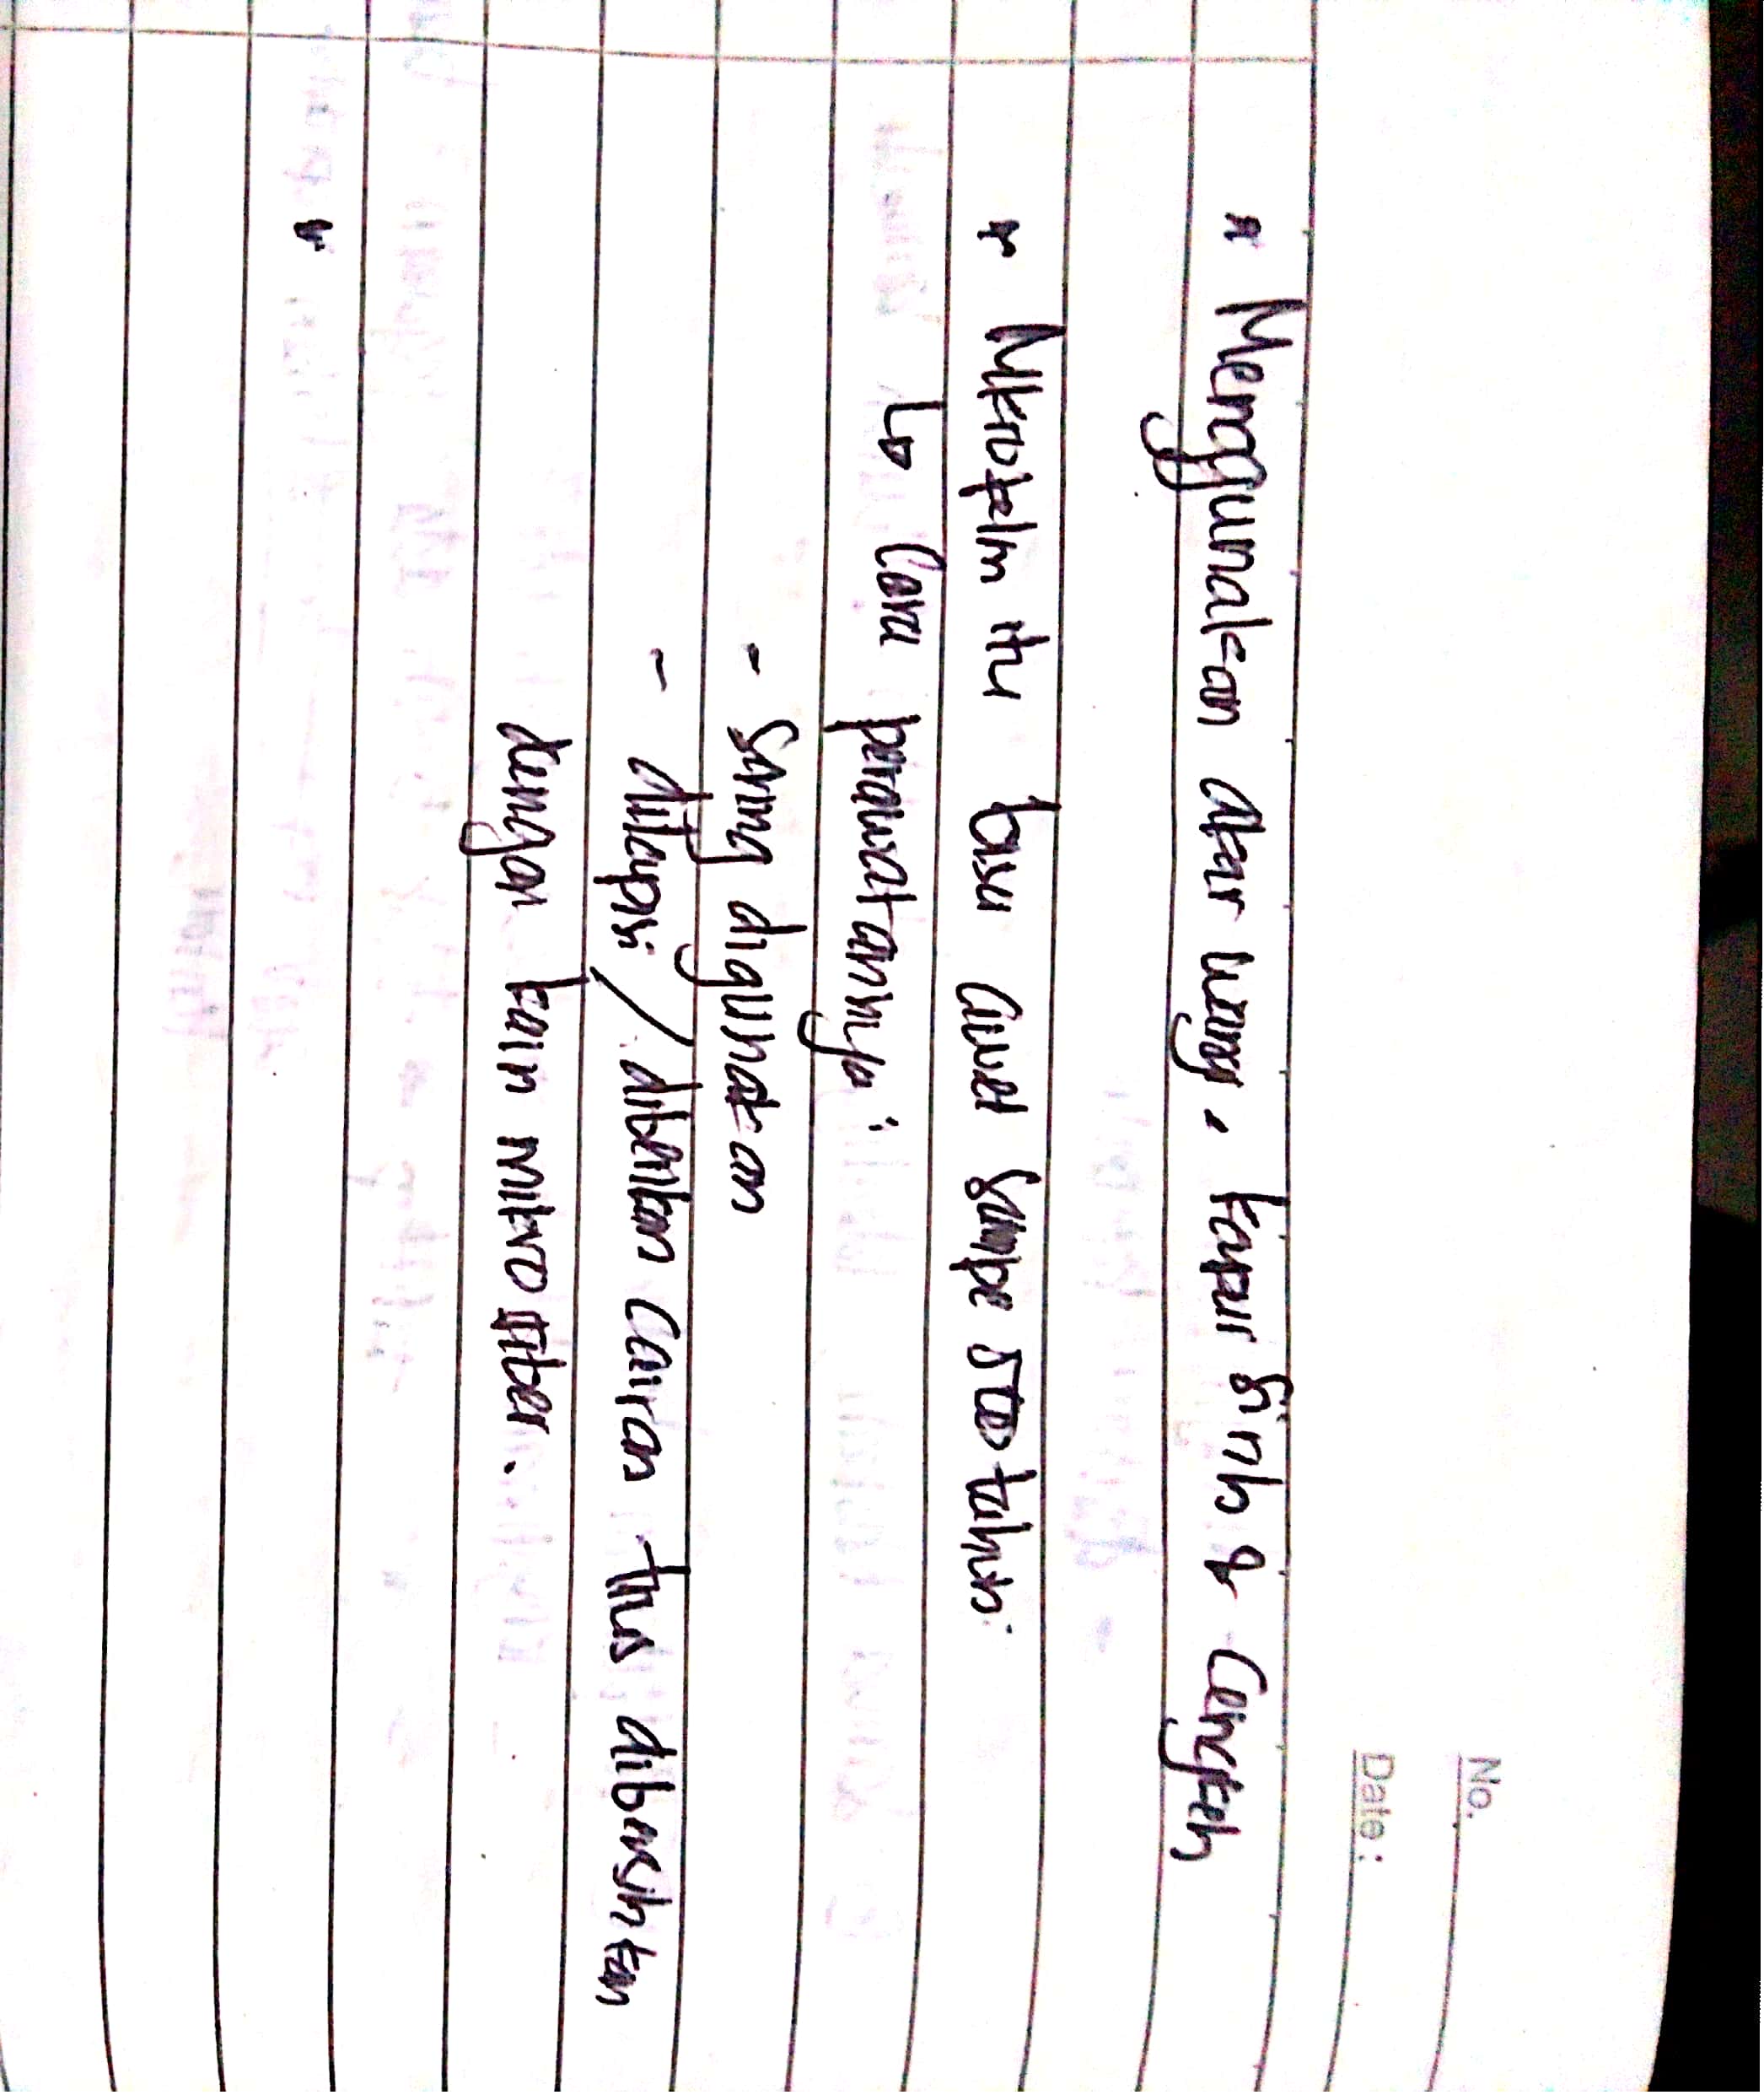 No.
Date:
" Menggunakan akar wangi, kapur sirih & Cengkeh
" Mikrofilm itu bisa awet sampe 500 tahun.
↳ Cara perawatannya :
- Sering digunakan
- dilapisi / diberikan Cairan trus dibersihkan
dengan kain mikrofiber.
"